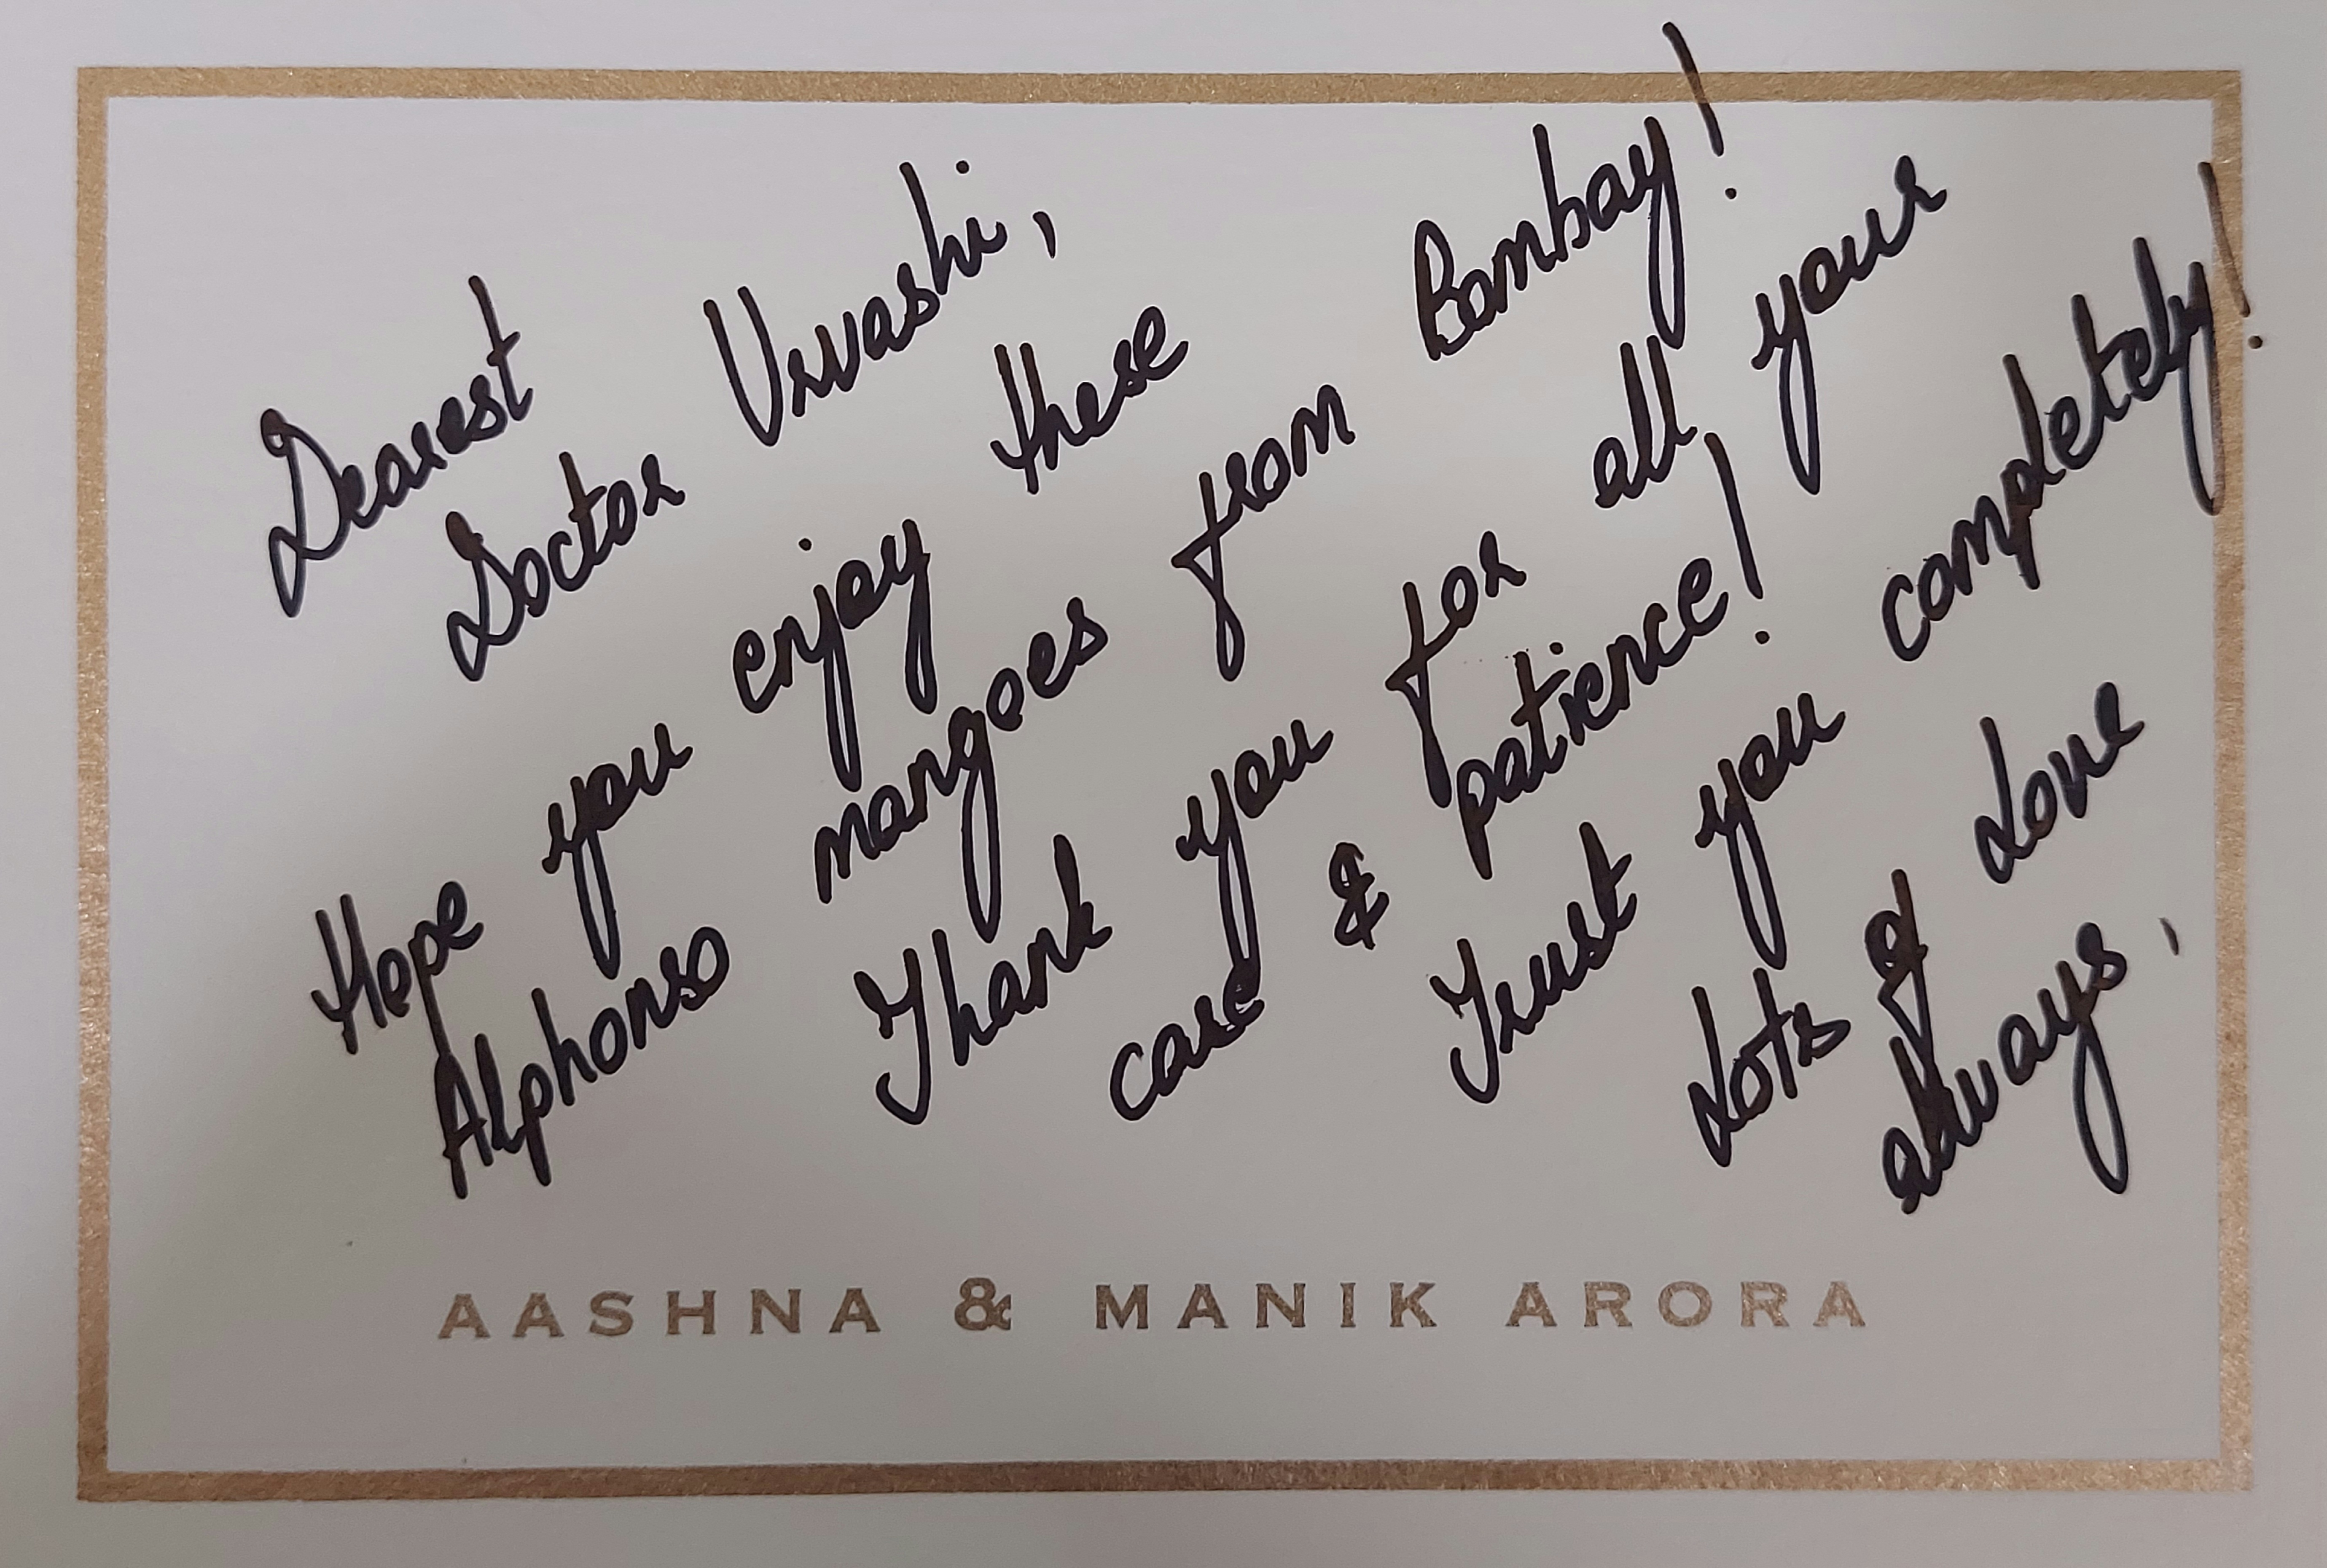 Dearest
Doctor Urvashi,
Hope you enjoy these
Alphonso mangoes from Bombay!
Thank you for all your
care & patience!
Trust you completely!
Lots of Love
always,
AASHNA & MANIK ARORA